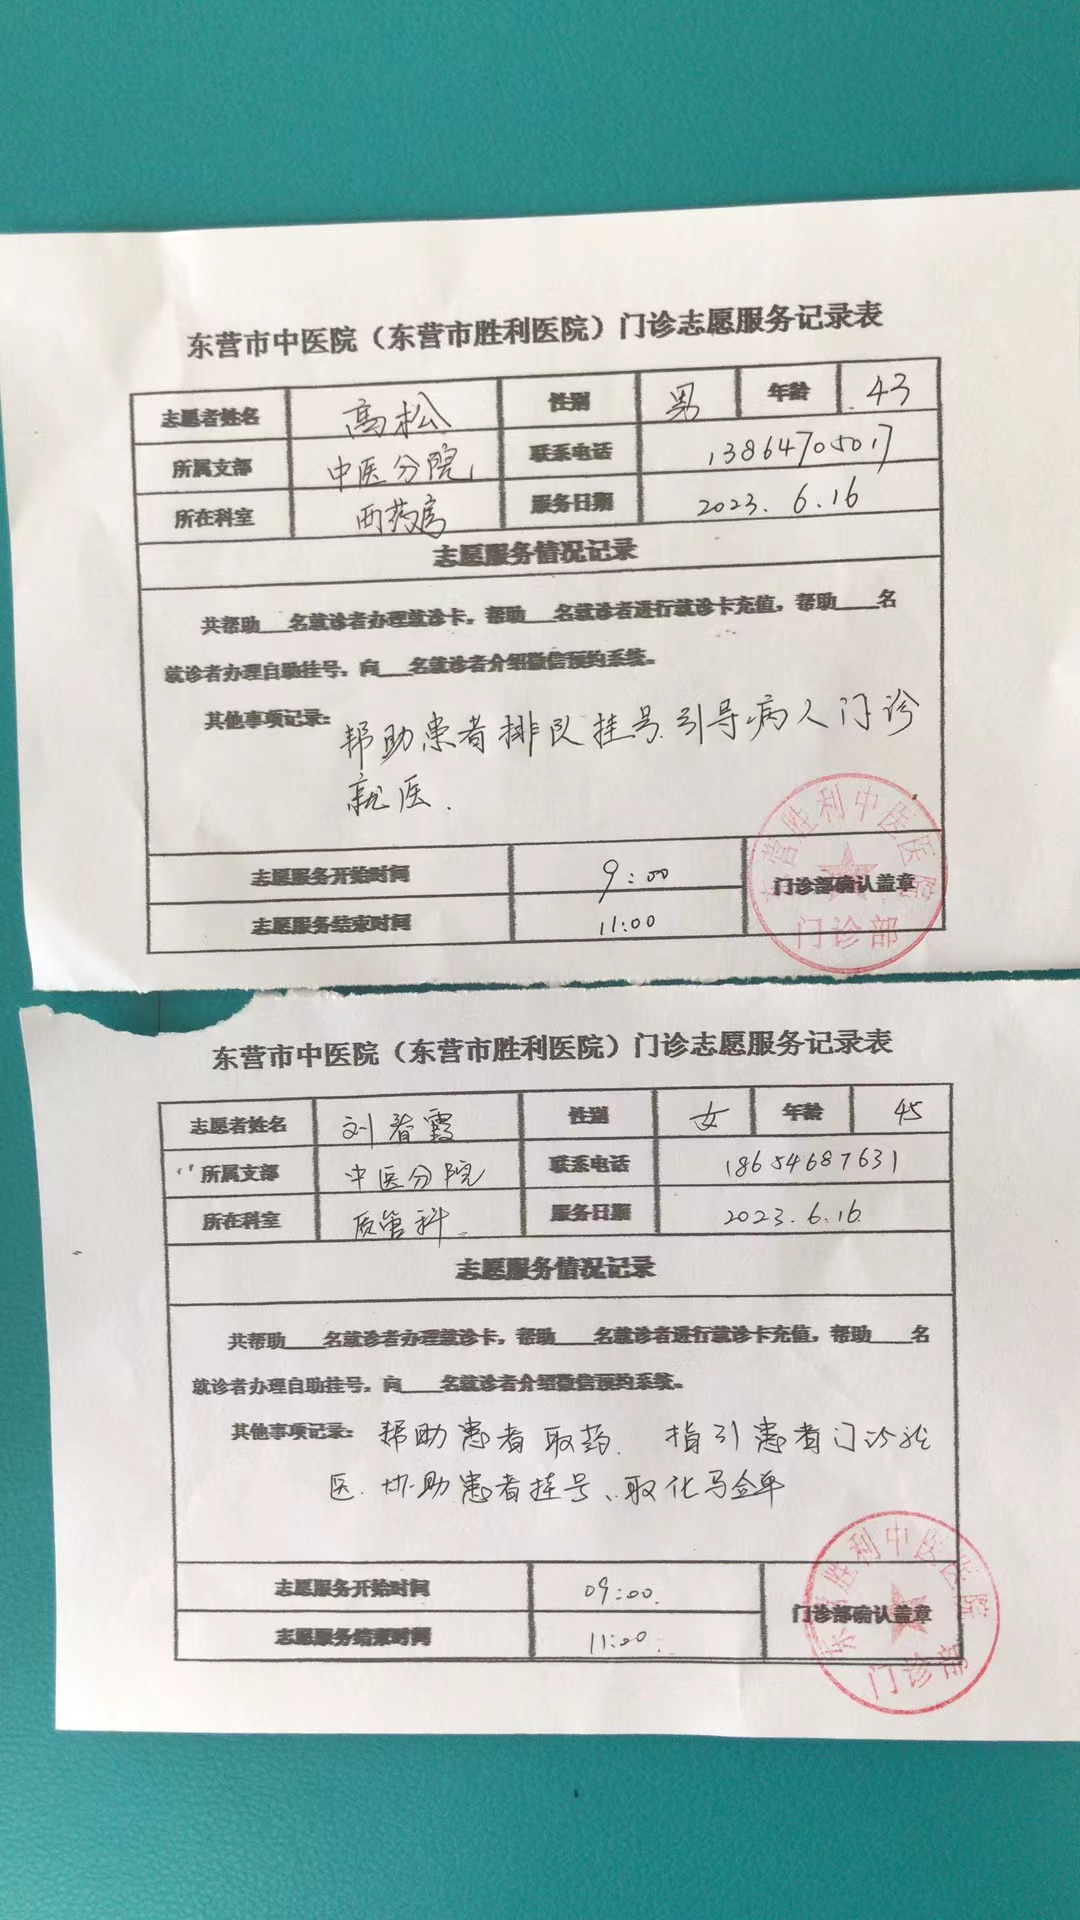 东营市中医院（东营市胜利医院）门诊志愿服务记录表
志愿者姓名 高松 性别 男 年龄 43
所属支部 中医分院 联系电话 13864705017
所在科室 西药房 服务日期 2023.6.16
志愿服务情况记录
共帮助___名就诊者办理就诊卡，帮助___名就诊者进行就诊卡充值，帮助___名
就诊者办理自助挂号，向___名就诊者介绍微信预约系统。
其他事项记录：帮助患者排队挂号.引导病人门诊
就医.
志愿服务开始时间 9:00
门诊部确认盖章
志愿服务结束时间 11:00
东营胜利中医医院
门诊部
东营市中医院（东营市胜利医院）门诊志愿服务记录表
志愿者姓名 刘春霞 性别 女 年龄 45
所属支部 中医分院 联系电话 18654687631
所在科室 质管科 服务日期 2023.6.16
志愿服务情况记录
共帮助___名就诊者办理就诊卡，帮助___名就诊者进行就诊卡充值，帮助___名
就诊者办理自助挂号，向___名就诊者介绍微信预约系统。
其他事项记录：帮助患者取药. 指引患者门诊
医.协助患者挂号、取化验单
志愿服务开始时间 09:00
门诊部确认盖章
志愿服务结束时间 11:00
东营胜利中医医院
门诊部